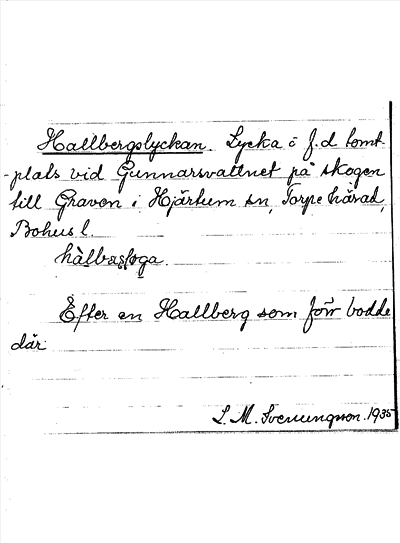 Hallbergslyckan. Lycka o f.d. tomt-
plats vid Gunnarsvattnet på skogen
till Graven i Hjärtum sn, Torpe härad,
Bohus l.
Efter en Hallberg som förr bodde
där
L. M. Svenungsson. 1935